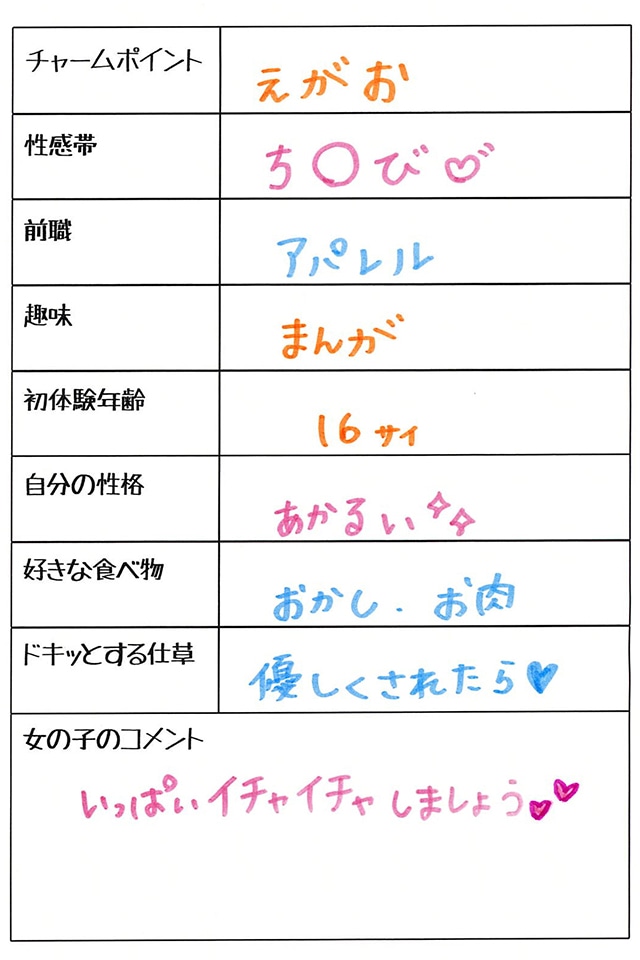 チャームポイント
えがお
性感帯
ち〇び♡゛
前職
アパレル
趣味
まんが
初体験年齢
16サイ
自分の性格
あかるい✧✧
好きな食べ物
おかし.お肉
ドキッとする仕草
優しくされたら♥
女の子のコメント
いっぱいイチャイチャしましょう♥♥